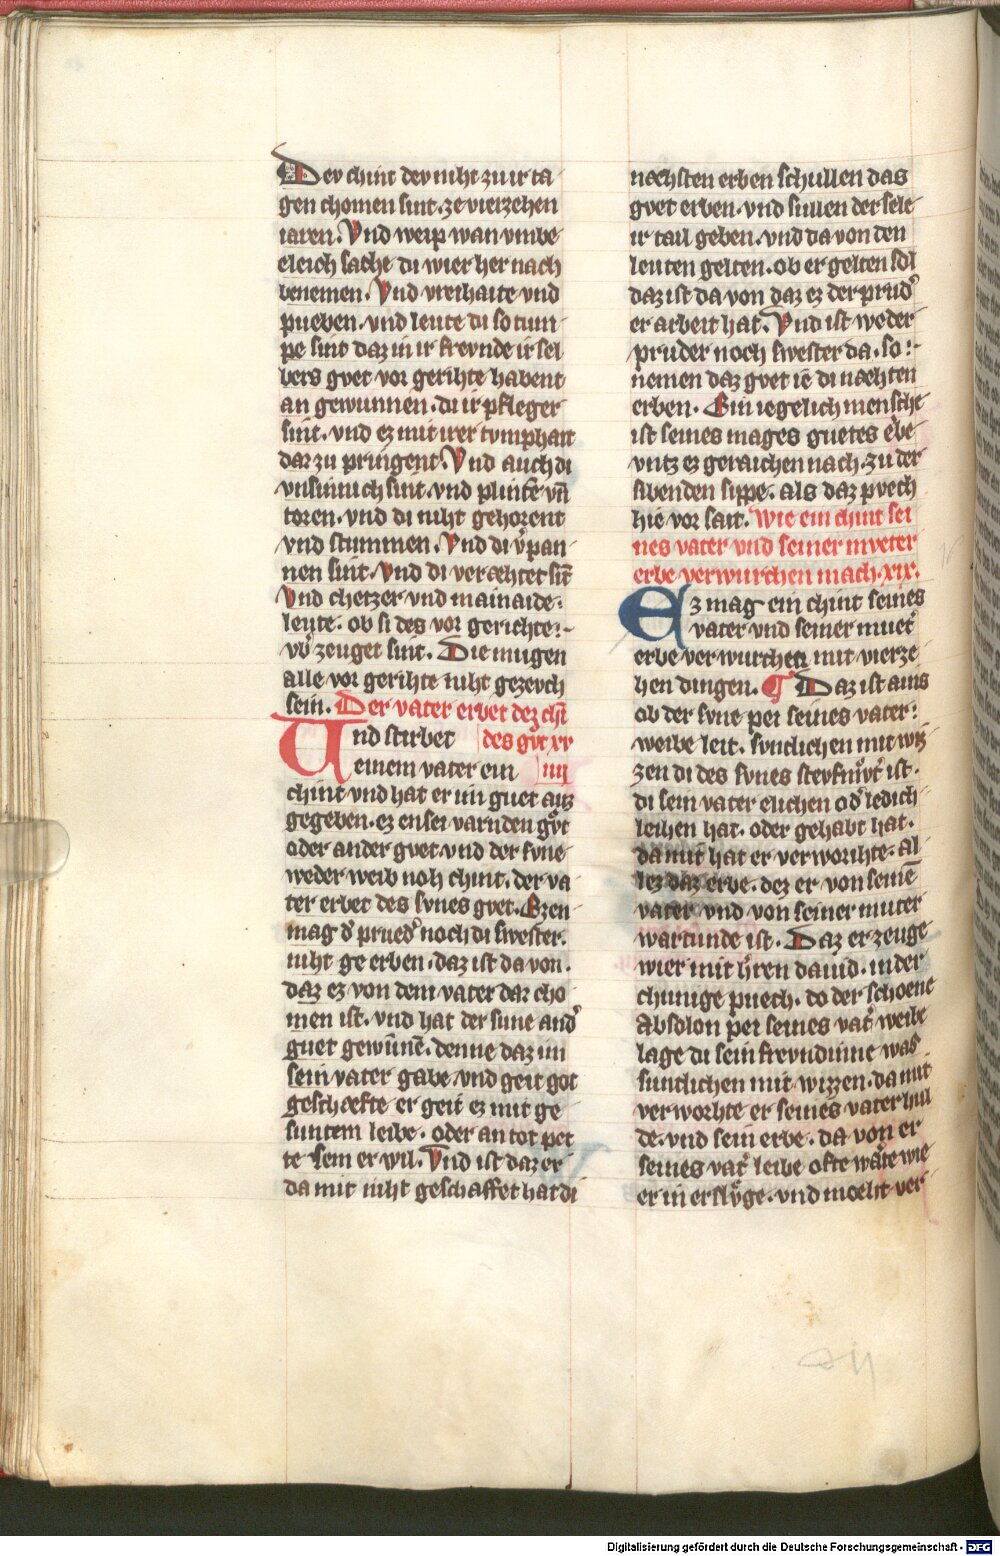 Der chint der niht zu ir ta
gen chomen sint. ze vierzehen
iaren. Vnd weip wan vmbe
eleich sache di wier her nach
benemen. Vnd vreihaite vnd
pueben. vnd leute di so tum
pe sint daz in ir frevnde ir sel
bers gvet vor gerihte habent
an gewunnen. di ir pfleger
sint. vnd ez mit irer tvmphait
dar zu pringent. Vnd auch di
vnsinnich sint. vnd plinte vn̄
toren. vnd di niht gehorent
vnd stummen. Vnd di v̾pan
nen sint. Vnd di veræhtet sīt
Vnd chetzer vnd mainaide
leute. ob si des vor gerichte
vb̾ zeuget sint. Die mugen
alle vor gerihte niht gezevch
sein. Der vater erbet dez chī
Vnd stirbet des gv̊t xv
einem vater ein iiii
chint vnd hat er im guet auz
gegeben. ez ensei varnden gv̊t
oder ander gvet vnd der svne
weder weib noh chint. der va
ter erbet des svnes gvet. Ezen
mag d̾ prued̾ noch di swester
niht ge erben. daz ist da von.
daz ez von dem vater dar cho
men ist. vnd hat der sune and̾
guet gewūnē. denne daz im
sein vater gabe vnd geit got
geschæfte er geit ez mit ge
suntem leibe. oder an tot pet
te sem er wil. Vnd ist daz er
da mit niht geschaffet hat di
næchsten erben schullen das
gvet erben. vnd sullen der sele
ir tail geben. vnd da von den
leuten gelten. ob er gelten sol
daz ist da von daz ez der prud̾
er arbeit hat. Vnd ist weder
pruder noch swester da. so
nemen daz gvet ie di næchten
erben. Ein iegelich mensche
ist seines mages guetes erbe
vntz ez geraichen nach. zu der
sibenden sippe. als daz pvech
hie vor sait. Wie ein chint sei
nes vater vnd seiner mveter
erbe verwurchen mach. xix.
Ez mag ein chint seines
vater vnd seiner muet̾
erbe verwurchen mit vierze
hen dingen. ¶ Daz ist ains
ob der svne pei seines vater
weibe leit. svntlichen mit wiz
zen di des svnes stevfmv̊t̾ ist.
di sein vater elichen od̾ ledich
leihen hat. oder gehabt hat.
da mit hat er verworihte. al
lez daz erbe. dez er von seinē
vater vnd von seiner muter
wartunde ist. Daz erzeuge
wier mit h̾ren dauid. in der
chunige puech. do der schoene
Absolon pei seines vat̾ weibe
lage di sein frevndinne was
suntlichen mit wizzen. da mit
verworhte er seines vater hul
de. vnd sein erbe. da von er
seines vat̾ leibe ofte wâte wie
er in erslv̊ge. vnd moeht ver
Digitalisierung gefördert durch die Deutsche Forschungsgemeinschaft - DFG